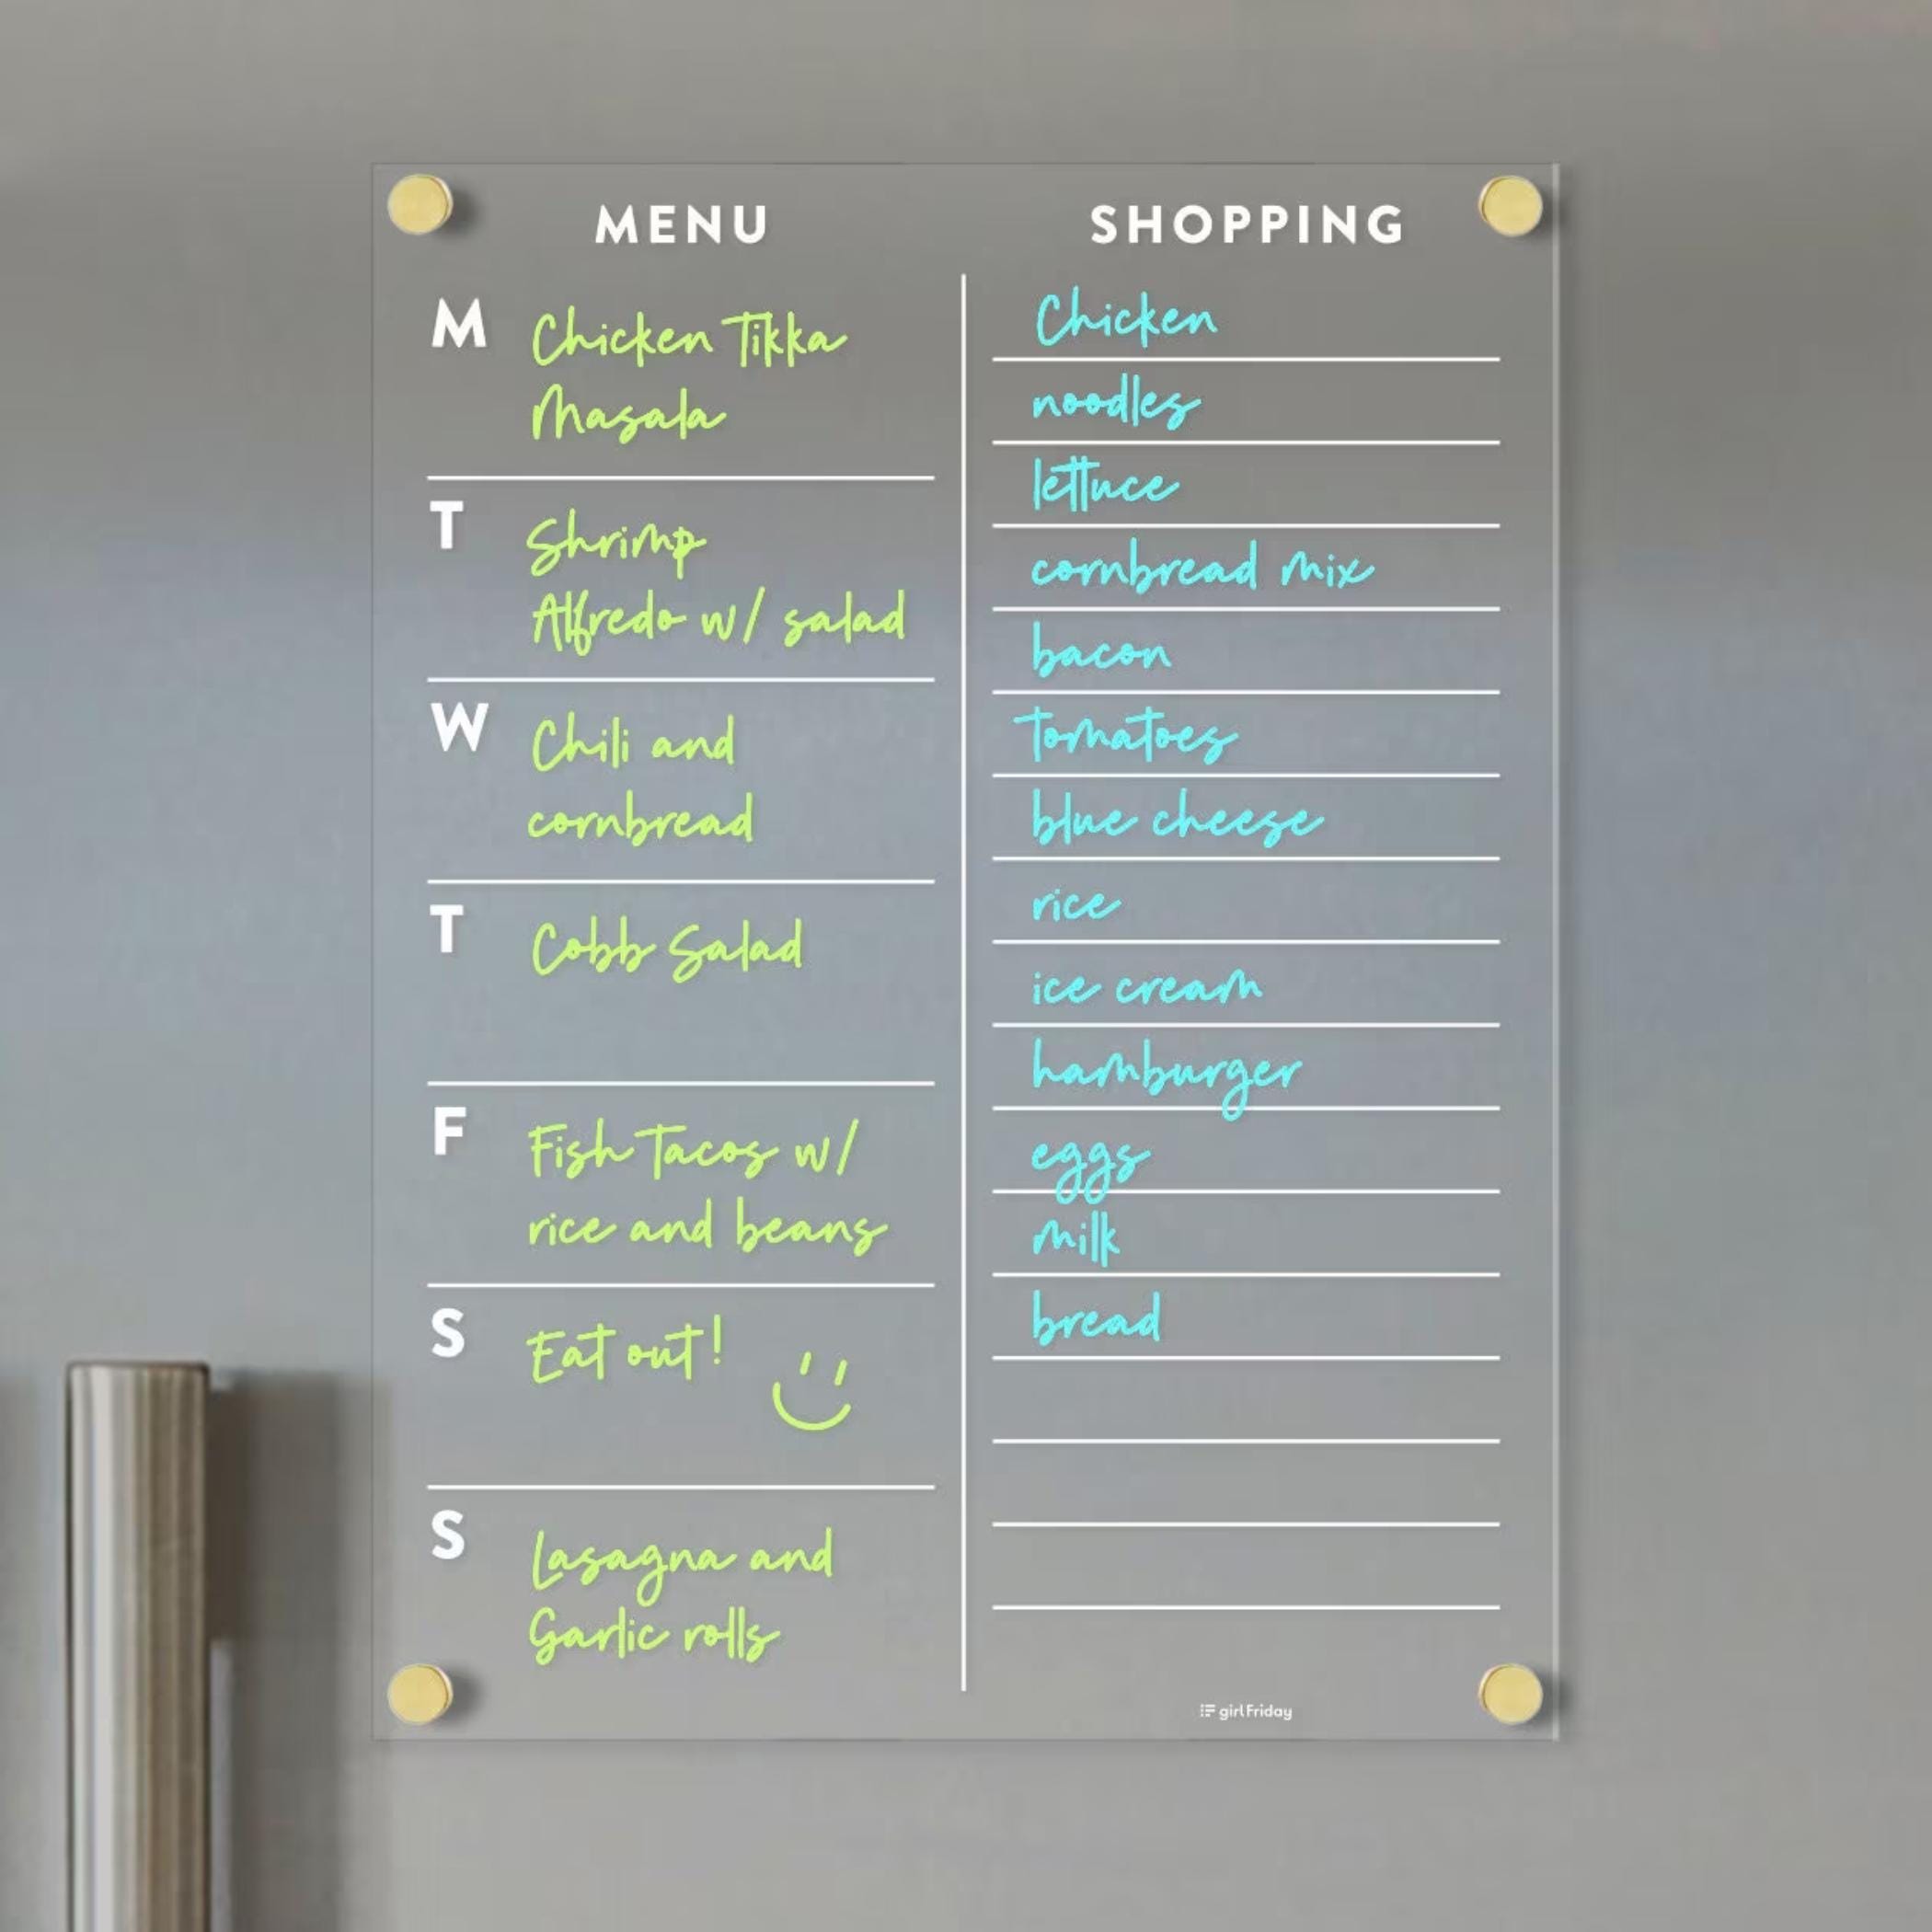 MENU
M
Chicken Tikka
Masala
T
Shrimp
Alfredo w/ salad
W
Chili and
cornbread
T
Cobb Salad
F
Fish Tacos w/
rice and beans
S
Eat out!
S
Lasagna and
Garlic rolls
SHOPPING
Chicken
noodles
lettuce
cornbread mix
bacon
tomatoes
blue cheese
rice
ice cream
hamburger
eggs
milk
bread
girl Friday